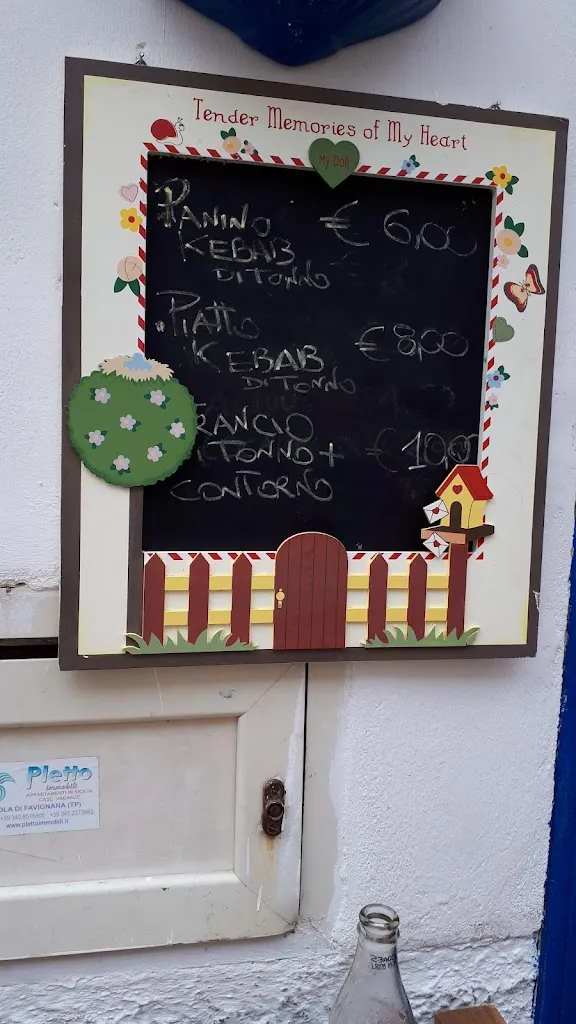 Tender Memories of My Heart
My Doll
PANINO € 6,00
KEBAB
DI TONNO
PIATTO € 8,00
KEBAB
DI TONNO
TRANCIO
DI TONNO + € 10,00
CONTORNO
Pletto
immobili
APPARTAMENTI IN SICILIA
CASE, VACANZE
OLA DI FAVIGNANA (TP)
www.plettoimmobili.it